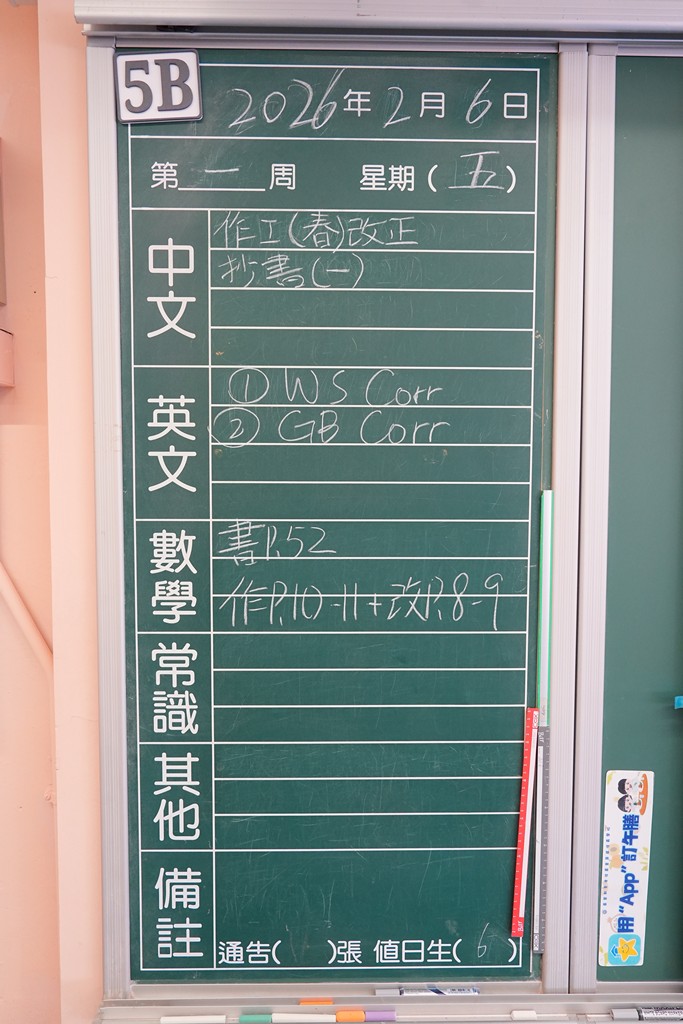 5B
2026年2月6日
第一周 星期(五)
中文
作工(春)改正
抄書(一)
英文
① WS Corr
② GB Corr
數學
書P.52
作P.10-11+改P.8-9
常識
其他
備註
通告( )張 值日生(6)
用"App"訂午膳